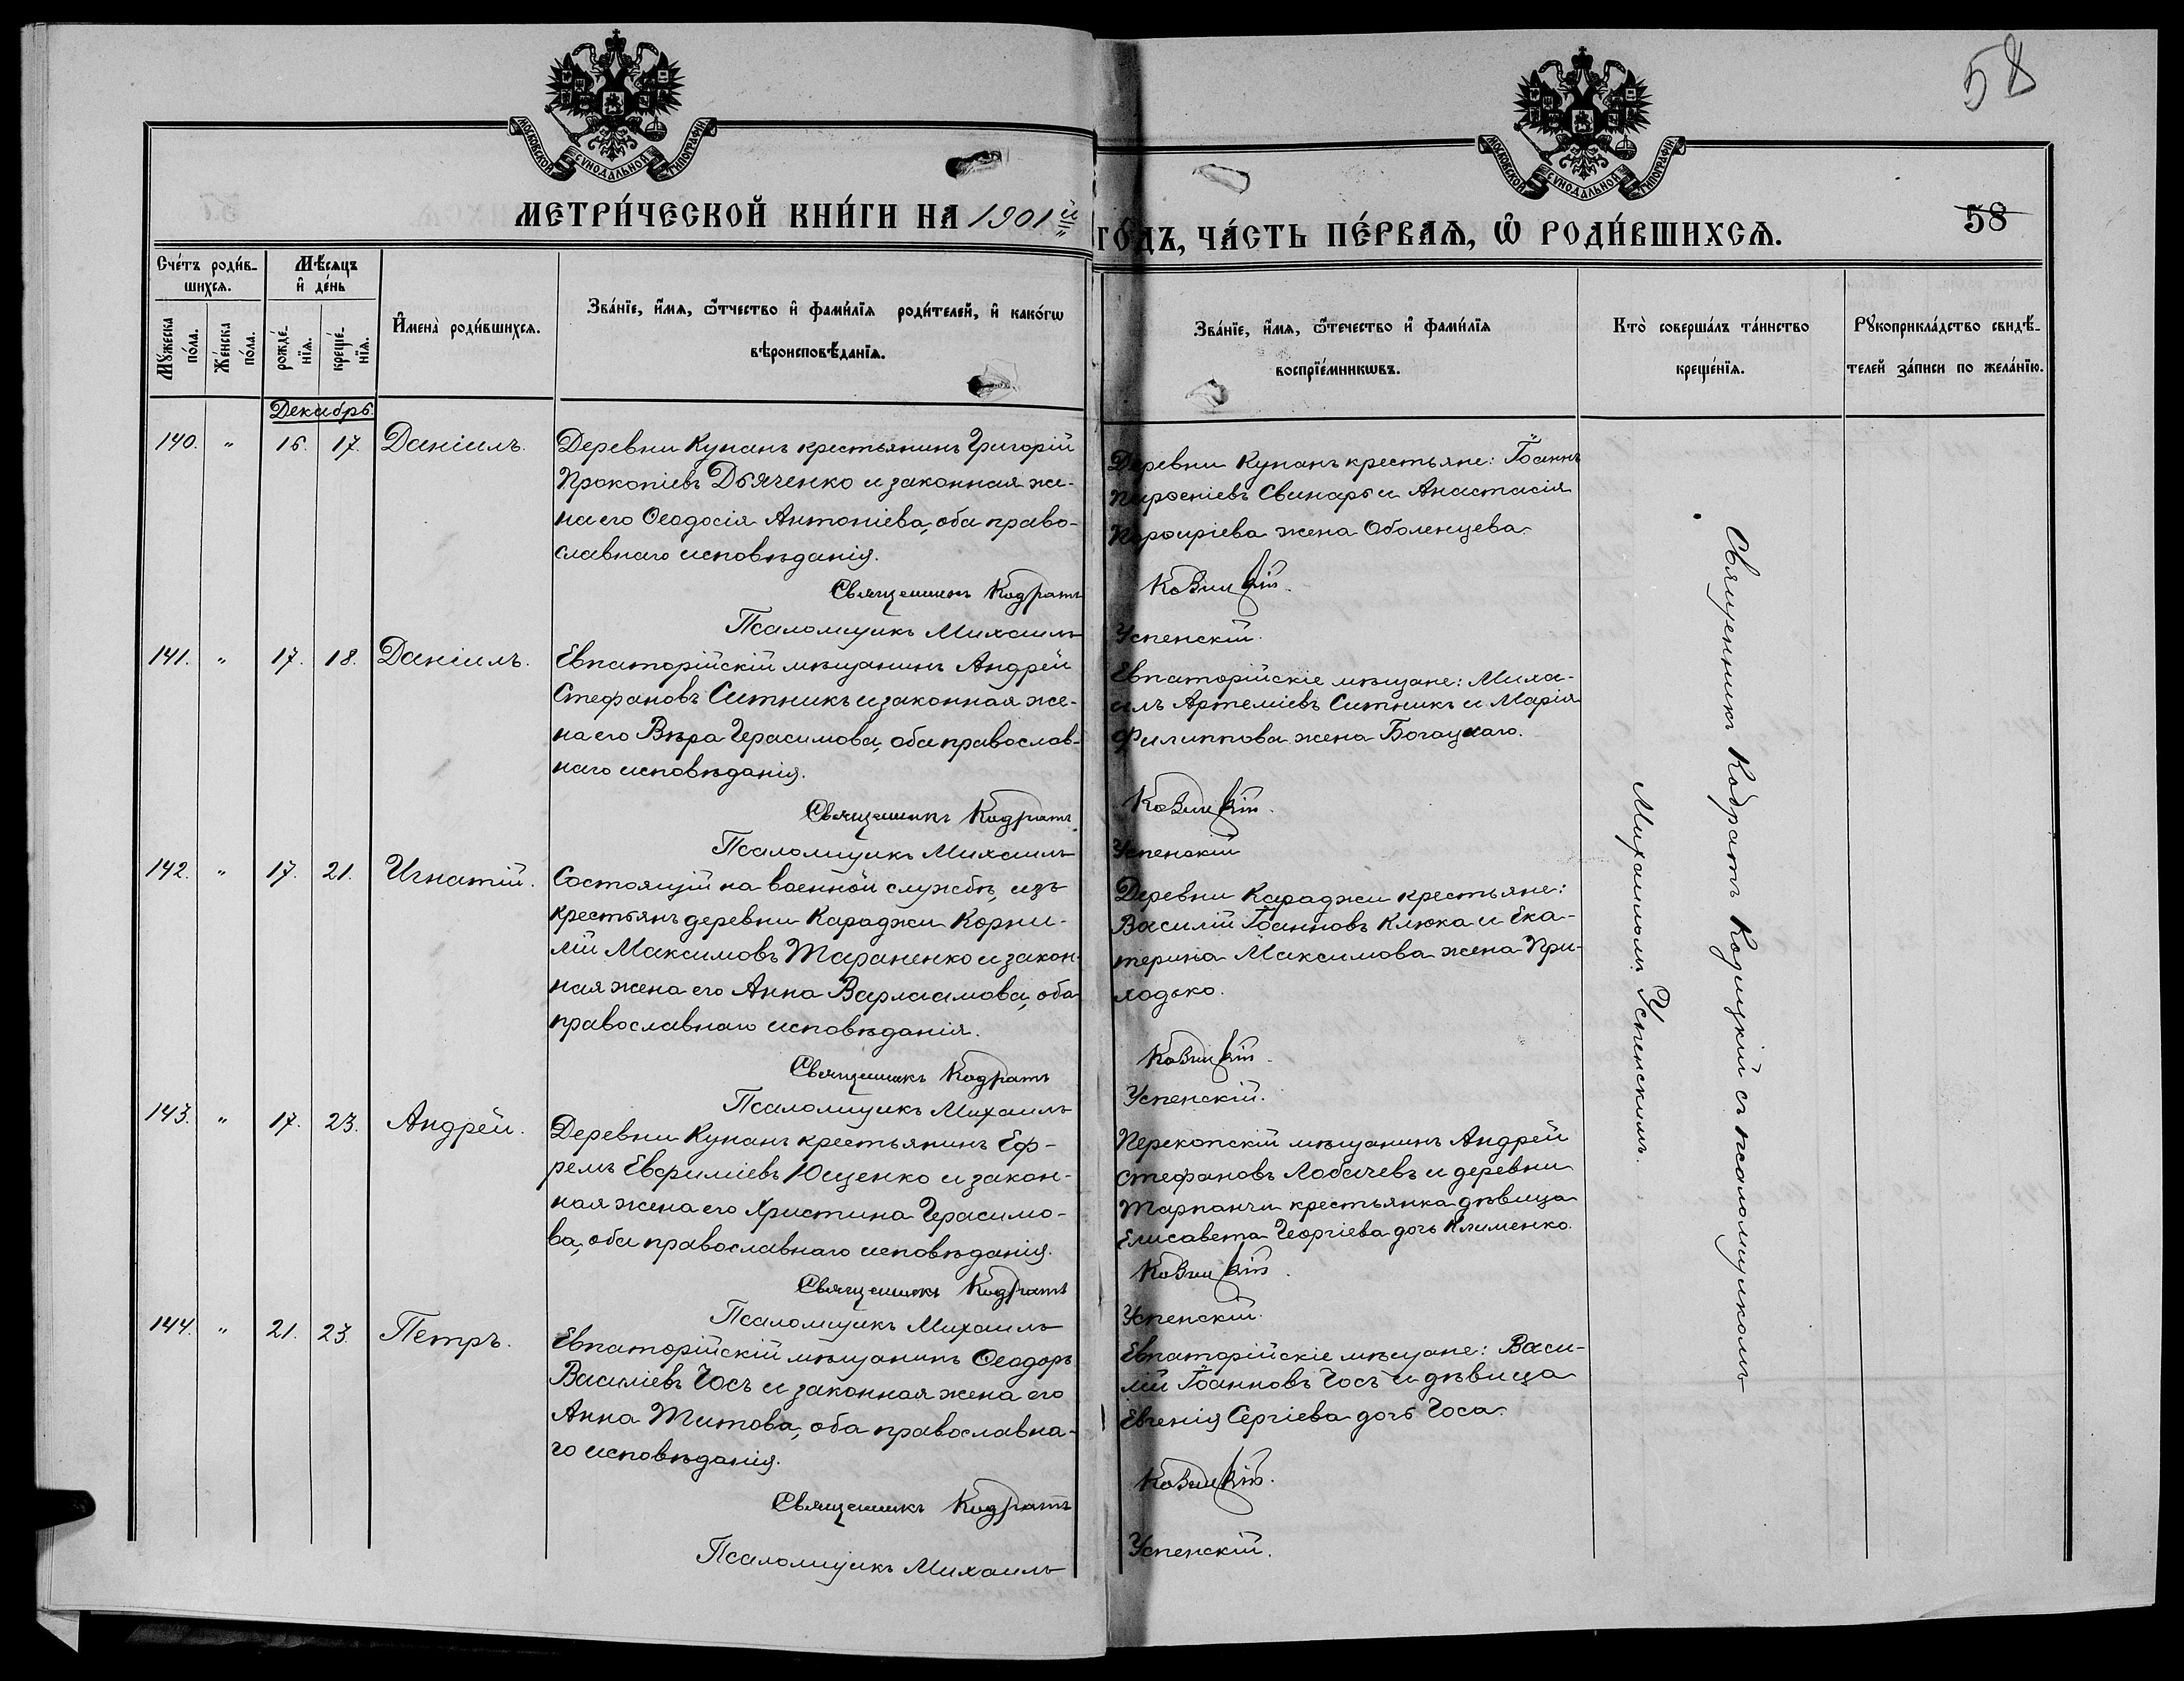 58
МОСКОВСКОЙ СУНОДАЛЬНОЙ ТИПОГРАФІИ
МОСКОВСКОЙ СУНОДАЛЬНОЙ ТИПОГРАФІИ
МЕТРИ́ЧЕСКОЙ КНИ́ГИ НА 1901й
ГО́ДЪ, ЧА́СТЬ ПЕ́РВАѦ, Ѡ РОДИ́ВШИХСѦ.
58
Сче́тъ роди́в-
шихсѧ.
Мꙋ́жеска
по́ла.
Же́нска
по́ла.
Мѣ́сѧцъ
и҆ де́нь
рожде́-
нїѧ.
креще́-
нїѧ.
И҆мена̀ роди́вшихсѧ.
Зва́нїе, и҆́мѧ, ѻ҆́тчество и҆ фами́лїѧ роди́телей, и҆ како́гѡ
вѣроисповѣ́данїѧ.
Зва́нїе, и҆́мѧ, ѻ҆те́чество и҆ фами́лїѧ
воспрїе́мникѡвъ.
Кто̀ соверша́лъ та́инство
креще́нїѧ.
Рꙋкоприкла́дство свидѣ́-
телей за́писи по жела́нїю.
Декабрь.
140. " 15. 17. Даніилъ.
Деревни Кунанъ крестьянинъ Григорій
Прокопіевъ Дьяченко и законная же-
на его Ѳеодосія Антоніева, оба право-
славнаго исповѣданія.
Священникъ Кодратъ
Псаломщикъ Михаилъ
Деревни Кунанъ крестьяне: Іоаннъ
Свинарь и Анастасія
Порфиріева жена Оболенцева.
Козицкій.
Успенскій.
141. " 17. 18. Даніилъ.
Евпаторійскій мѣщанинъ Андрей
Стефановъ Ситникъ и законная же-
на его Вѣра Герасимова, оба православ-
наго исповѣданія.
Священникъ Кодратъ
Псаломщикъ Михаилъ
Евпаторійскіе мѣщане: Миха-
илъ Артеміевъ Ситникъ и Марія
Филиппова жена Богацкаго.
Козицкій.
Успенскій
142. " 17. 21. Игнатій.
Состоящій на военной службѣ, изъ
крестьянъ деревни Караджи Корни-
лій Максимовъ Тараненко и закон-
ная жена его Анна Варлаамова, оба
православнаго исповѣданія.
Священникъ Кодратъ
Псаломщикъ Михаилъ
Деревни Караджи крестьяне:
Василій Іоанновъ Клюка и Ека-
терина Максимова жена При-
ходько.
Козицкій.
Успенскій.
143. " 17. 23. Андрей.
Деревни Кунанъ крестьянинъ Еф-
ремъ Евфиміевъ Ющенко и закон-
ная жена его Христина Герасимо-
ва, оба православнаго исповѣданія.
Священникъ Кодратъ
Псаломщикъ Михаилъ
Перекопскій мѣщанинъ Андрей
Стефановъ Лобачевъ и деревни
Тарпанчи крестьянка дѣвица
Елисавета Георгіева дочь Клименко.
Козицкій.
Успенскій.
144. " 21. 23. Петръ.
Евпаторійскій мѣщанинъ Ѳеодоръ
Василіевъ Госъ и законная жена его
Анна Титова, оба православна-
го исповѣданія.
Священникъ Кодратъ
Псаломщикъ Михаилъ
Евпаторійскіе мѣщане: Васи-
лій Іоанновъ Госъ и дѣвица
Евгенія Сергіева дочь Госа.
Козицкій.
Успенскій.
Священникъ Кодратъ Козицкій съ псаломщикомъ
Михаиломъ Успенскимъ.